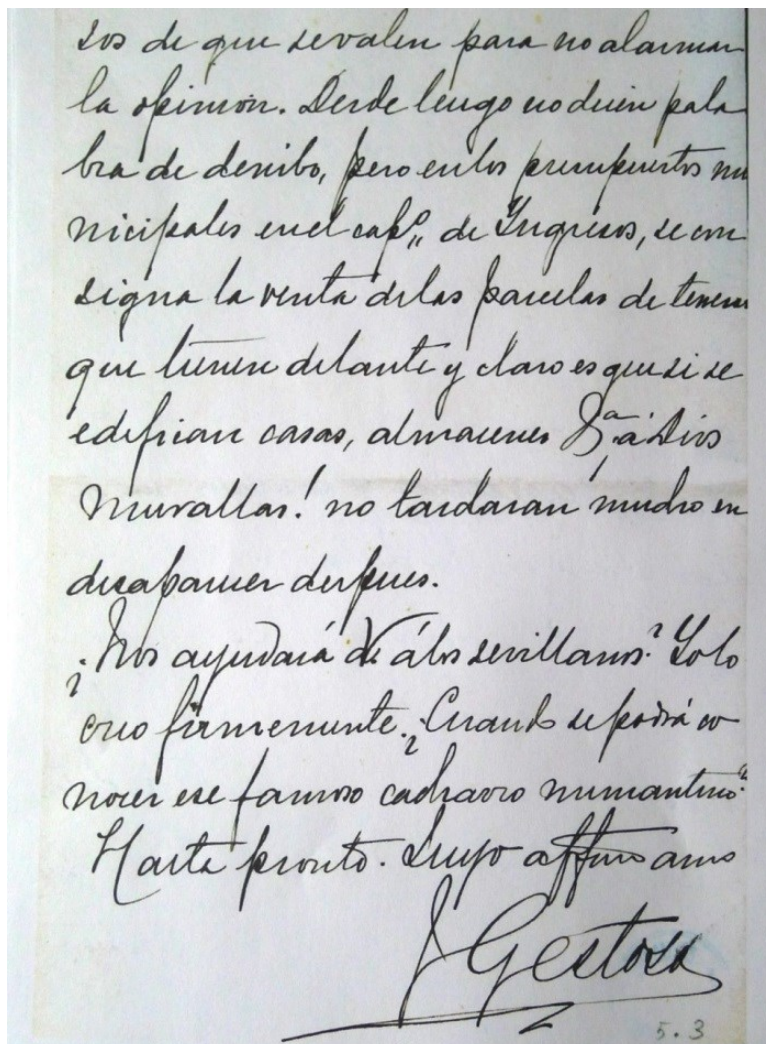 sos de que se valen para no alarmar
la opinión. Desde luego no dicen pala
bra de derribo, pero en los presupuestos mu
nicipales en el capº,, de Ingresos, se con
signa la venta de las parcelas de terreno
que tienen delante y claro es que si se
edifican casas, almacenes &ª á Dios
murallas! no tardarán mucho en
desaparecer despues.
¿Nos ayudará V. á los sevillanos? Yo lo
creo firmemente. ¿Cuando se podrá co
nocer ese famoso cacharro numantino?
Hasta pronto. Suyo affmo amo
J Gestoso
5.3